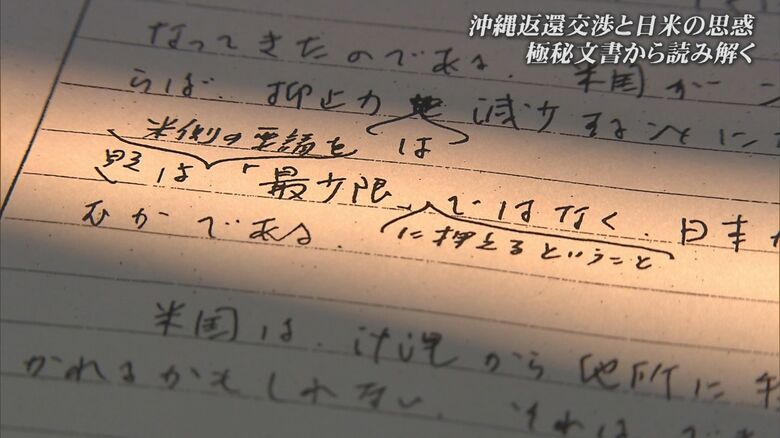 沖縄返還交渉と日米の思惑
極秘文書から読み解く
なってきたのである。米国が
らば、抑止力 減少することに
米側の要請を は
は「最少限」ではなく、日本
むかである。 に押えるということ
米国は、 から 他所に
かれるかもしれない。それは